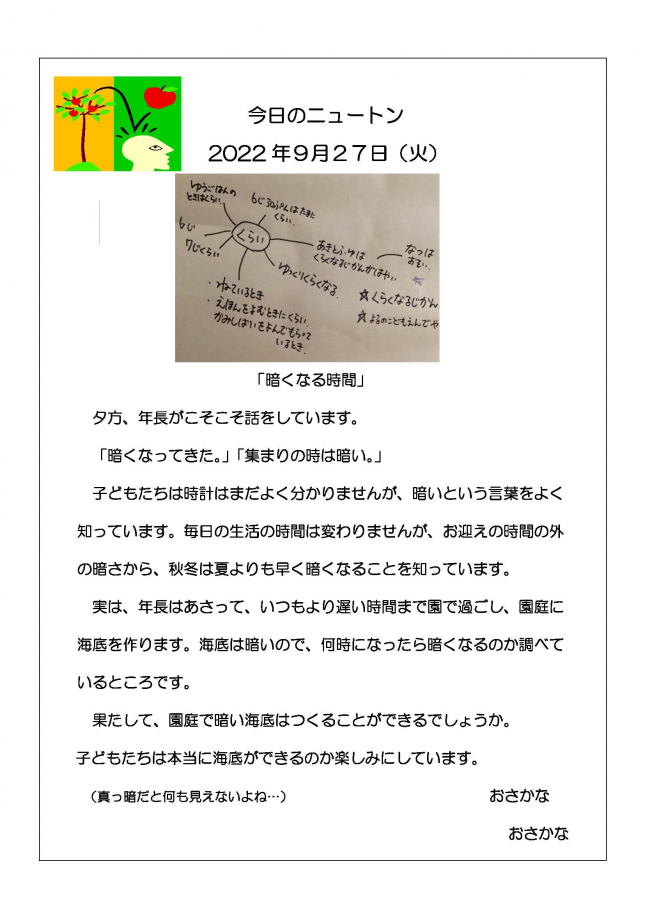 今日のニュートン
2022年9月27日（火）
ゆうごはんの
ときはくらい。
6じ30ぷんはたまに
くらい。
6じ
7じくらい
くらい
あきとふゆは
くらくなるじかんがはやい。
なつは
おそい。
ゆっくりくらくなる。
・ねているとき
・えほんをよむときにくらい
かみしばいをよんでもらって
いるとき。
☆くらくなるじかん
☆よるのこどもえんでや
「暗くなる時間」
夕方、年長がこそこそ話をしています。
「暗くなってきた。」「集まりの時は暗い。」
子どもたちは時計はまだよく分かりませんが、暗いという言葉をよく
知っています。毎日の生活の時間は変わりませんが、お迎えの時間の外
の暗さから、秋冬は夏よりも早く暗くなることを知っています。
実は、年長はあさって、いつもより遅い時間まで園で過ごし、園庭に
海底を作ります。海底は暗いので、何時になったら暗くなるのか調べて
いるところです。
果たして、園庭で暗い海底はつくることができるでしょうか。
子どもたちは本当に海底ができるのか楽しみにしています。
（真っ暗だと何も見えないよね…）
おさかな
おさかな